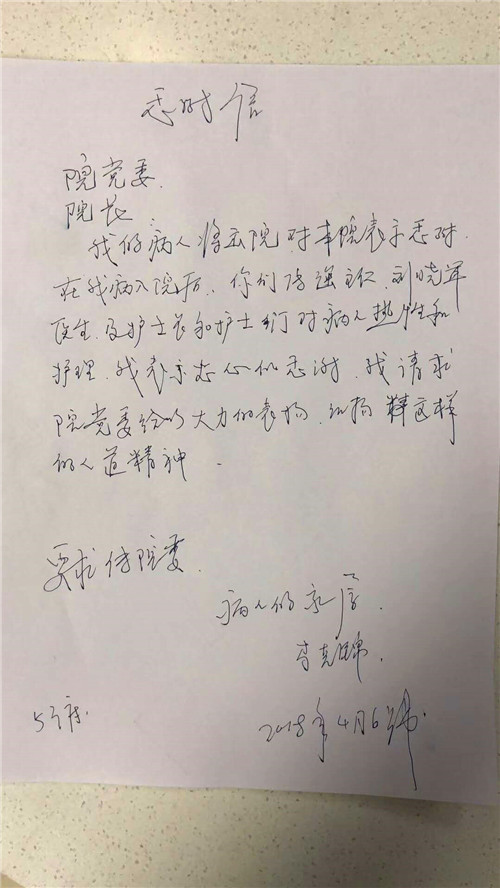 感谢信
院党委
院长
我的病人将出院.对本院表示感谢.
在我病人入院后.你们 强主任.刘晓军
医生.及护士长和护士们对病人热情和
护理.我表示 心的感谢.我请求
院党委给以大力的表扬. 扬 这样
的人道精神.
要求传院委.
病人的家属.
李
5床.
2018年4月6号